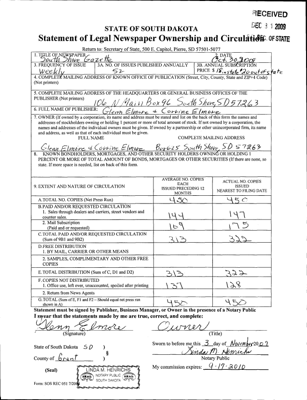 RECEIVED
DEC 31 2009
STATE OF SOUTH DAKOTA
Statement of Legal Newspaper Ownership and Circulation
SEC. OF STATE
Return to: Secretary of State, 500 E. Capitol, Pierre, SD 57501-5077
1. TITLE OF NEWSPAPER
2. DATE
South Shore Gazette
Oct 30, 2009
3. FREQUENCY OF ISSUE
3A. NO. OF ISSUES PUBLISHED ANNUALLY
3B. ANNUAL SUBSCRIPTION
Weekly
52
PRICE: $
4. COMPLETE MAILING ADDRESS OF KNOWN OFFICE OF PUBLICATION (Street, City, County, State and ZIP+4 Code)
(Not printers)
5. COMPLETE MAILING ADDRESS OF THE HEADQUARTERS OR GENERAL BUSINESS OFFICES OF THE
PUBLISHER (Not printer)
106 N. Main Box 96 South Shore, SD 57263
6. FULL NAME OF PUBLISHER:
Glenn Elmore & Corrine Elmore
7. OWNER (If owned by a corporation, its name and address must be stated and list on the back of this form the names and
addresses of stockholders owning or holding 1 percent or more of total amount of stock. If not owned by a corporation, the
names and addresses of the individual owners must be given. If owned by a partnership or other unincorporated firm, its name
and address, as well as that of each individual must be given.
FULL NAME
COMPLETE MAILING ADDRESS
Glenn Elmore & Corrine Elmore
South Shore, SD 57263
8. KNOWN BONDHOLDERS, MORTGAGES, AND OTHER SECURITY HOLDERS OWNING OR HOLDING 1
PERCENT OR MORE OF TOTAL AMOUNT OF BONDS, MORTGAGES OR OTHER SECURITIES (If there are none, so
state. If more space is needed, list on back of this form.
9. EXTENT AND NATURE OF CIRCULATION
AVERAGE NO. COPIES
EACH
ISSUED PRECEDING 12
MONTHS
ACTUAL NO. COPIES
ISSUED
NEAREST TO FILING DATE
A. TOTAL NO. COPIES (Net Press Run)
450
450
B. PAID AND/OR REQUESTED CIRCULATION
1. Sales through dealers and carriers, street vendors and
counter sales
144
147
2. Mail Subscription
(Paid and/or requested)
169
175
C. TOTAL PAID AND/OR REQUESTED CIRCULATION
(Sum of 9B1 and 9B2)
313
322
D. FREE DISTRIBUTION
1. BY MAIL, CARRIER OR OTHER MEANS
2. SAMPLES, COMPLIMENTARY AND OTHER FREE
COPIES
E. TOTAL DISTRIBUTION (Sum of C, D1 and D2)
313
322
F. COPIES NOT DISTRIBUTED
1. Office use, left over, unaccounted, spoiled after printing
137
128
2. Return from News Agents
G. TOTAL (Sum of E, F1 and F2 – Should equal net press run
shown in A)
450
450
Statement must be signed by Publisher, Business Manager, or Owner in the presence of a Notary Public
I swear that the statements made by me are true, correct, and complete:
Glenn Elmore
Owner
(Signature)
(Title)
State of South Dakota SD )
County of Grant )
Sworn to before me this 3 day of November 09
Linda M. Heinrichs
Notary Public
(Seal)
LINDA M. HEINRICHS
NOTARY PUBLIC
SOUTH DAKOTA
My commission expires: 4-17-2010